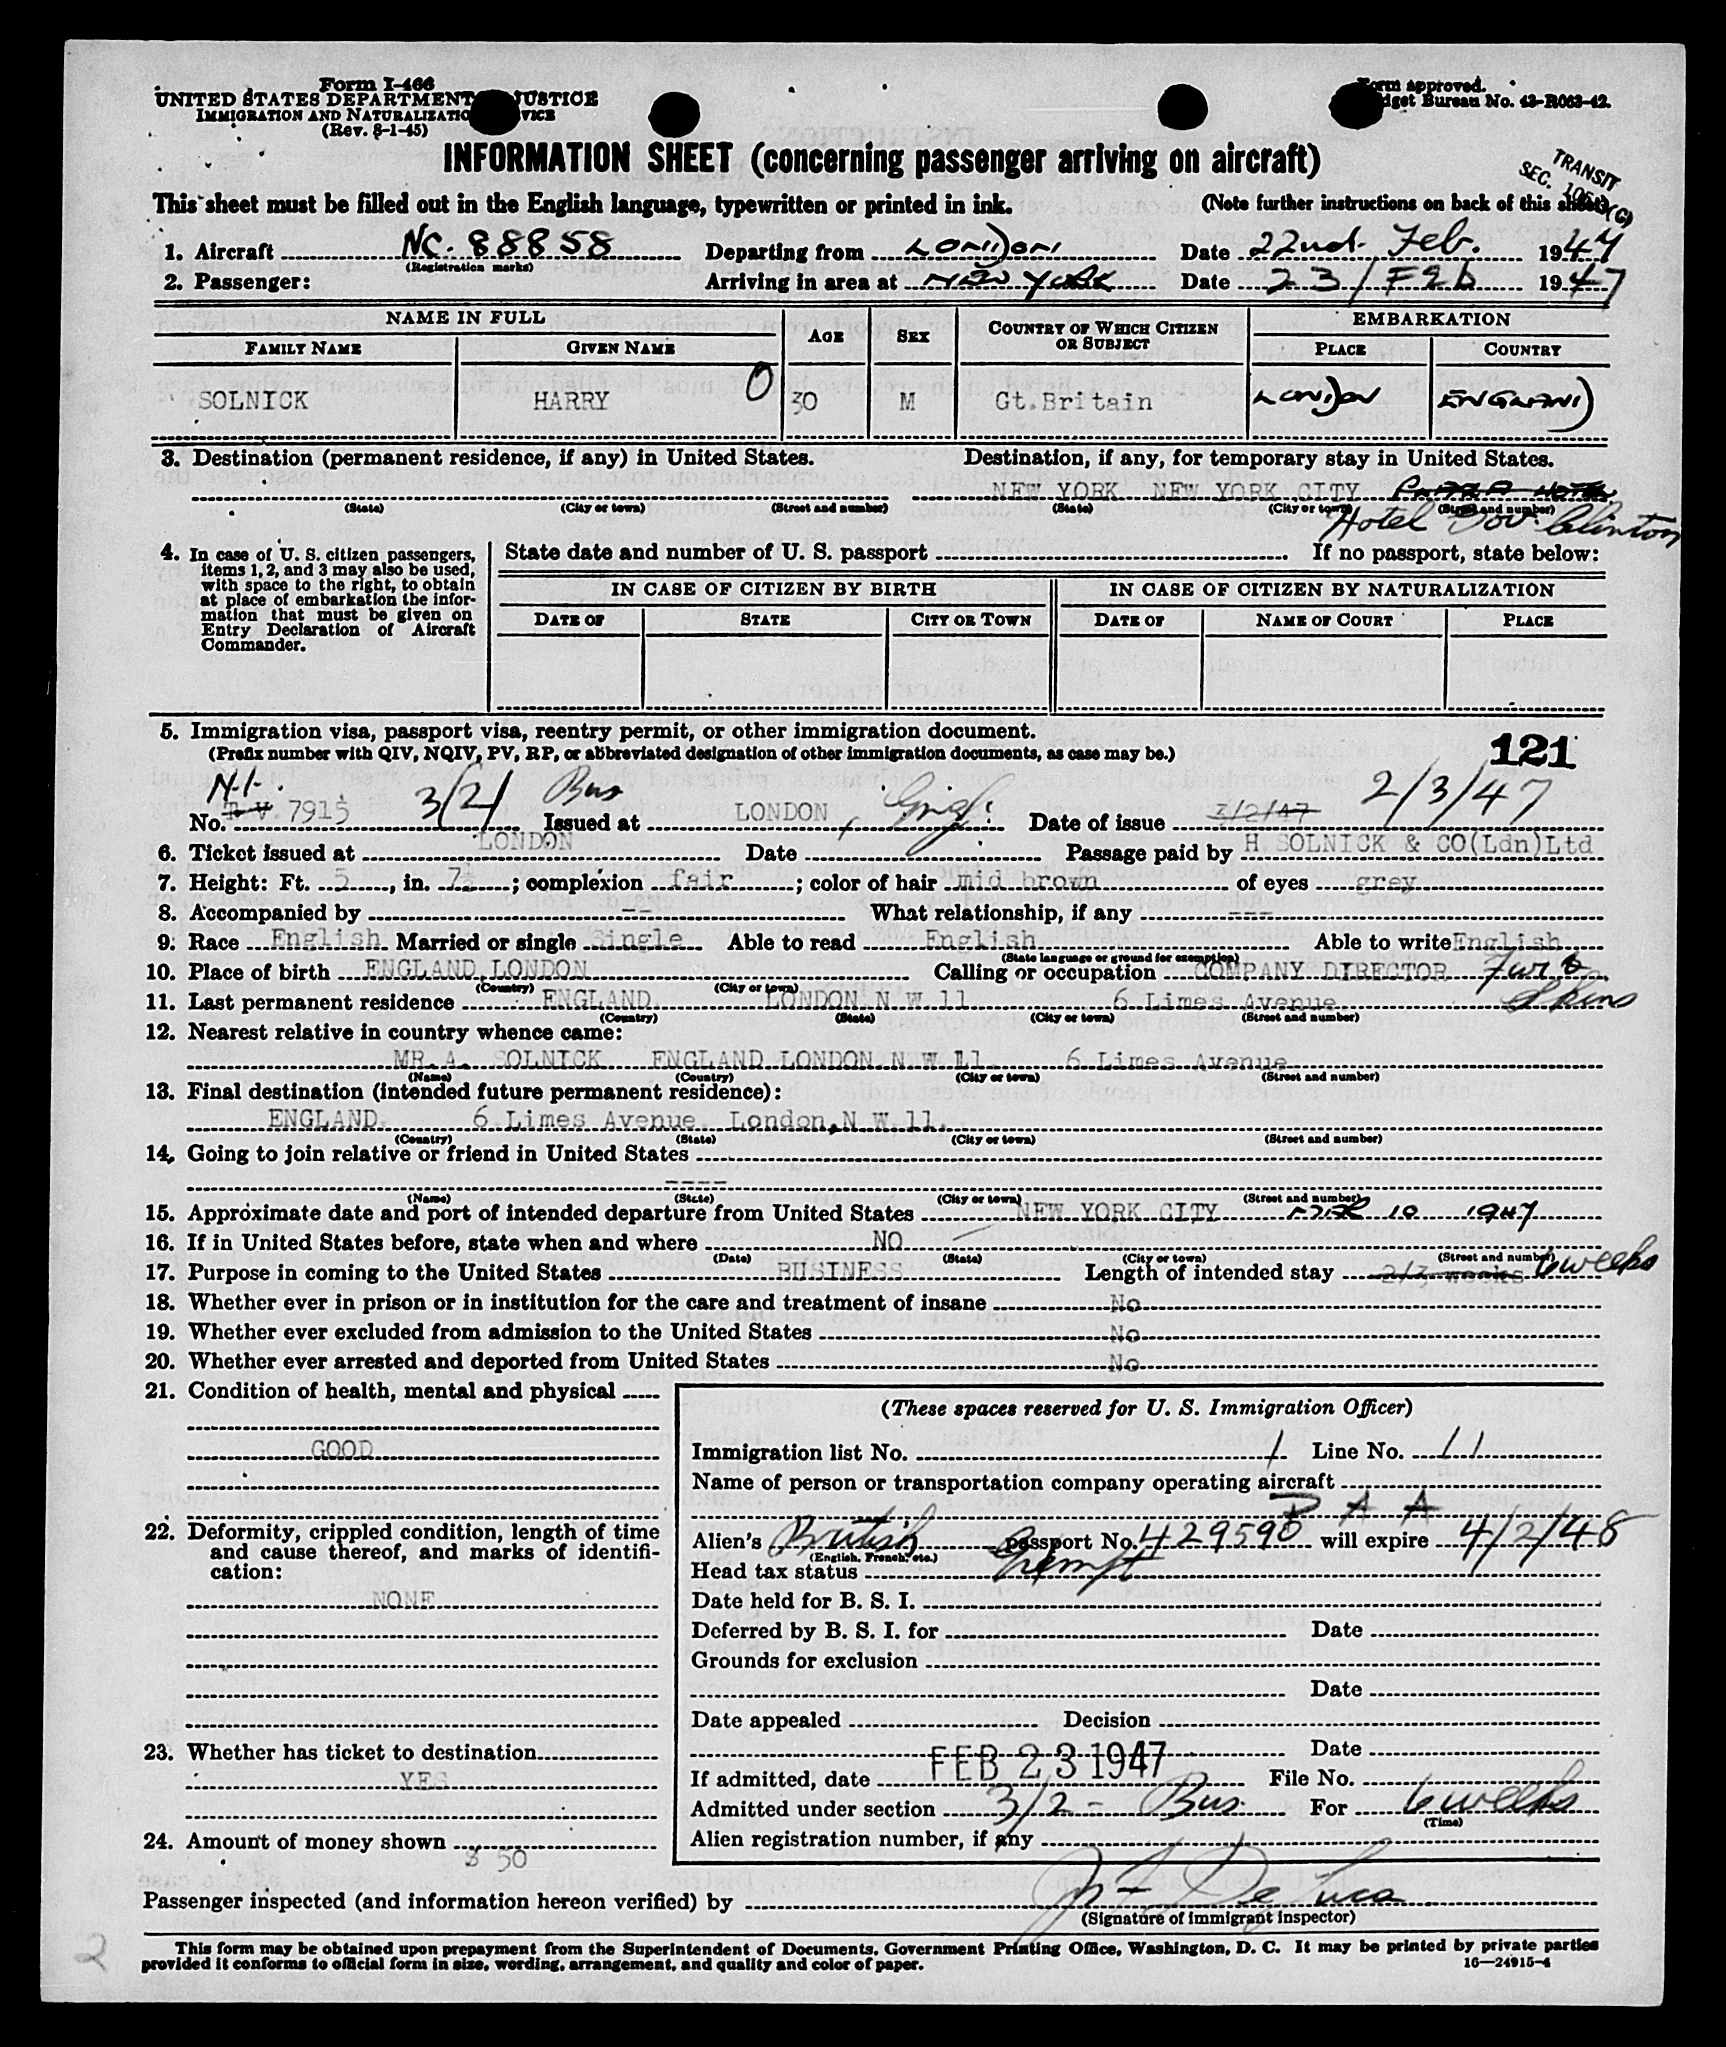 Form I-466
UNITED STATES DEPARTMENT JUSTICE
IMMIGRATION AND NATURALIZATIO VICE
(Rev. 8-1-45)
Form approved.
dget Bureau No. 43-R063-42.
INFORMATION SHEET (concerning passenger arriving on aircraft)
TRANSIT
SEC.
This sheet must be filled out in the English language, typewritten or printed in ink. (Note further instructions on back of this sheet)
1. Aircraft NC. 88858 Departing from LONDON Date 22nd. Feb. 1947
(Registration marks)
2. Passenger: Arriving in area at NEW YORK Date 23/FEB 1947
NAME IN FULL AGE SEX COUNTRY OF WHICH CITIZEN OR SUBJECT EMBARKATION
FAMILY NAME GIVEN NAME PLACE COUNTRY
SOLNICK HARRY O 30 M Gt.Britain LONDON ENGLAND
3. Destination (permanent residence, if any) in United States. Destination, if any, for temporary stay in United States.
NEW YORK NEW YORK CITY PLAZA HOTEL
(State) (City or town) (Street and number) (State) (City or town) (Street and number)
Hotel Gov. Clinton
4. In case of U. S. citizen passengers, items 1, 2, and 3 may also be used, with space to the right, to obtain at place of embarkation the information that must be given on Entry Declaration of Aircraft Commander.
State date and number of U. S. passport If no passport, state below:
IN CASE OF CITIZEN BY BIRTH IN CASE OF CITIZEN BY NATURALIZATION
DATE OF STATE CITY OR TOWN DATE OF NAME OF COURT PLACE
5. Immigration visa, passport visa, reentry permit, or other immigration document.
(Prefix number with QIV, NQIV, PV, RP, or abbreviated designation of other immigration documents, as case may be.)
121
N.I. 3/2/ Bus 2/3/47
No. T.V. 7915 Issued at LONDON, Date of issue 3/2/47
6. Ticket issued at LONDON Date Passage paid by H SOLNICK & CO(Ldn)Ltd
7. Height: Ft. 5, in. 7½; complexion fair; color of hair mid brown of eyes grey
8. Accompanied by -- What relationship, if any ---
9. Race English Married or single Single Able to read English Able to write English
(State language or ground for exemption)
10. Place of birth ENGLAND,LONDON Calling or occupation COMPANY DIRECTOR Fur &
(Country) (City or town) Skins
11. Last permanent residence ENGLAND. LONDON.N W.11 6 Limes Avenue
(Country) (State) (City or town) (Street and number)
12. Nearest relative in country whence came:
MR.A. SOLNICK ENGLAND LONDON.N W.11. 6 Limes Avenue
(Name) (Country) (City or town) (Street and number)
13. Final destination (intended future permanent residence):
ENGLAND. 6.Limes Avenue. London,N W.11.
(Country) (State) (City or town) (Street and number)
14. Going to join relative or friend in United States
----
(Name) (State) (City or town) (Street and number)
15. Approximate date and port of intended departure from United States NEW YORK CITY MAR 10 1947
16. If in United States before, state when and where NO
(Date) (State) (City or town) (Street and number)
17. Purpose in coming to the United States BUSINESS Length of intended stay 2/3 weeks 6 weeks
18. Whether ever in prison or in institution for the care and treatment of insane No
19. Whether ever excluded from admission to the United States No
20. Whether ever arrested and deported from United States No
21. Condition of health, mental and physical
GOOD
22. Deformity, crippled condition, length of time and cause thereof, and marks of identification:
NONE
23. Whether has ticket to destination
YES
24. Amount of money shown
$ 50
(These spaces reserved for U. S. Immigration Officer)
Immigration list No. 1 Line No. 11
Name of person or transportation company operating aircraft
P A A
Alien's British passport No. 429590 will expire 4/2/48
(English, French, etc.)
Head tax status Exempt
Date held for B. S. I.
Deferred by B. S. I. for Date
Grounds for exclusion
Date
Date appealed Decision
Date
If admitted, date FEB 23 1947 File No.
Admitted under section 3/2 - Bus. For 6 weeks
(Time)
Alien registration number, if any
Passenger inspected (and information hereon verified) by De Luca
(Signature of immigrant inspector)
2
This form may be obtained upon prepayment from the Superintendent of Documents, Government Printing Office, Washington, D. C. It may be printed by private parties
provided it conforms to official form in size, wording, arrangement, and quality and color of paper.
16—24915-4